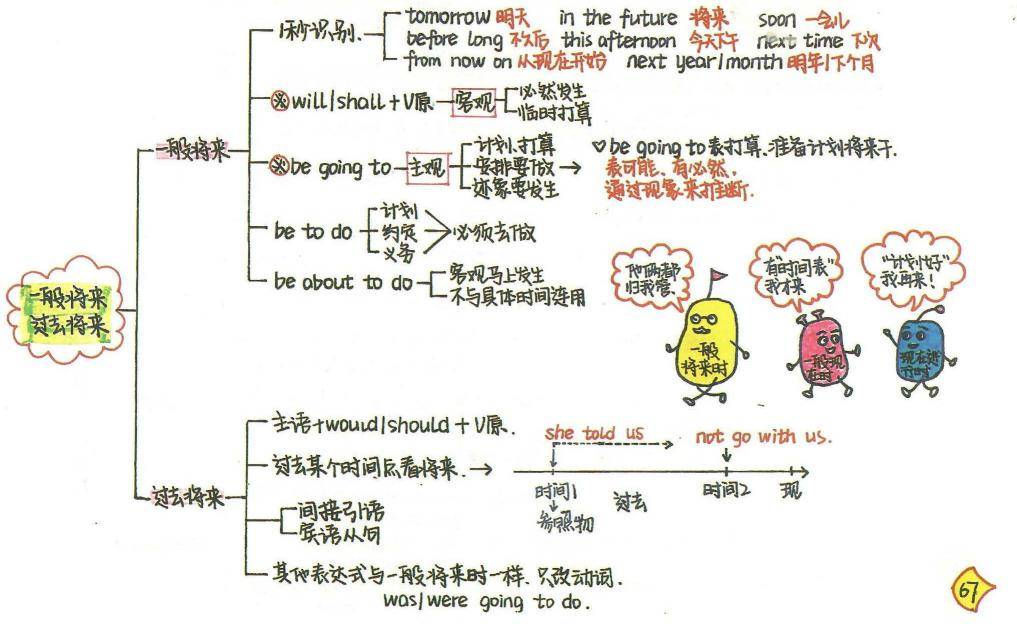 1秒识别.
tomorrow 明天 in the future 将来 soon 一会儿
before long 不久后 this afternoon 今天下午 next time 下次
from now on 从现在开始 next year/month 明年/下个月
※will/shall + V原
客观
必然发生
临时打算
一般将来
※be going to
主观
计划、打算
安排要做
迹象要发生
♡ be going to 表打算、准备计划将来干.
表可能、有必然.
通过现象来推断.
be to do
计划
约定
义务
必须去做
be about to do
客观马上发生
不与具体时间连用
一般将来
过去将来
他俩都
归我管、
有“时间表”
我才来
“计划好”
我再来！
一般
将来时
一般现
在时
现在进
行时
过去将来
主语+would/should + V原.
过去某个时间点看将来.
she told us
not go with us.
时间1
过去
时间2
现
参照物
间接引语
宾语从句
其他表达式与一般将来时一样、只改动词.
was/were going to do.
67